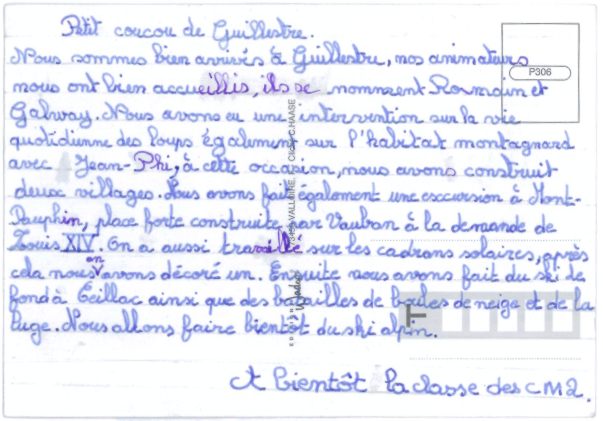 Petit coucou de Guillestre.
Nous sommes bien arrivés à Guillestre, nos animateurs
nous ont bien accueillis, ils se nomment Romain et
Galway. Nous avons eu une intervention sur la vie
quotidienne des loups également sur l'habitat montagnard
avec Jean-Phi, à cette occasion, nous avons construit
deux villages. Nous avons fait également une excursion à Mont-
Dauphin, place forte construite par Vauban à la demande de
Louis XIV. On a aussi travaillé sur les cadrans solaires, après
cela nous en avons décoré un. Ensuite nous avons fait du ski de
fond à Ceillac ainsi que des batailles de boules de neige et de la
luge. Nous allons faire bientôt du ski alpin.
A bientôt la classe des CM2.
P306